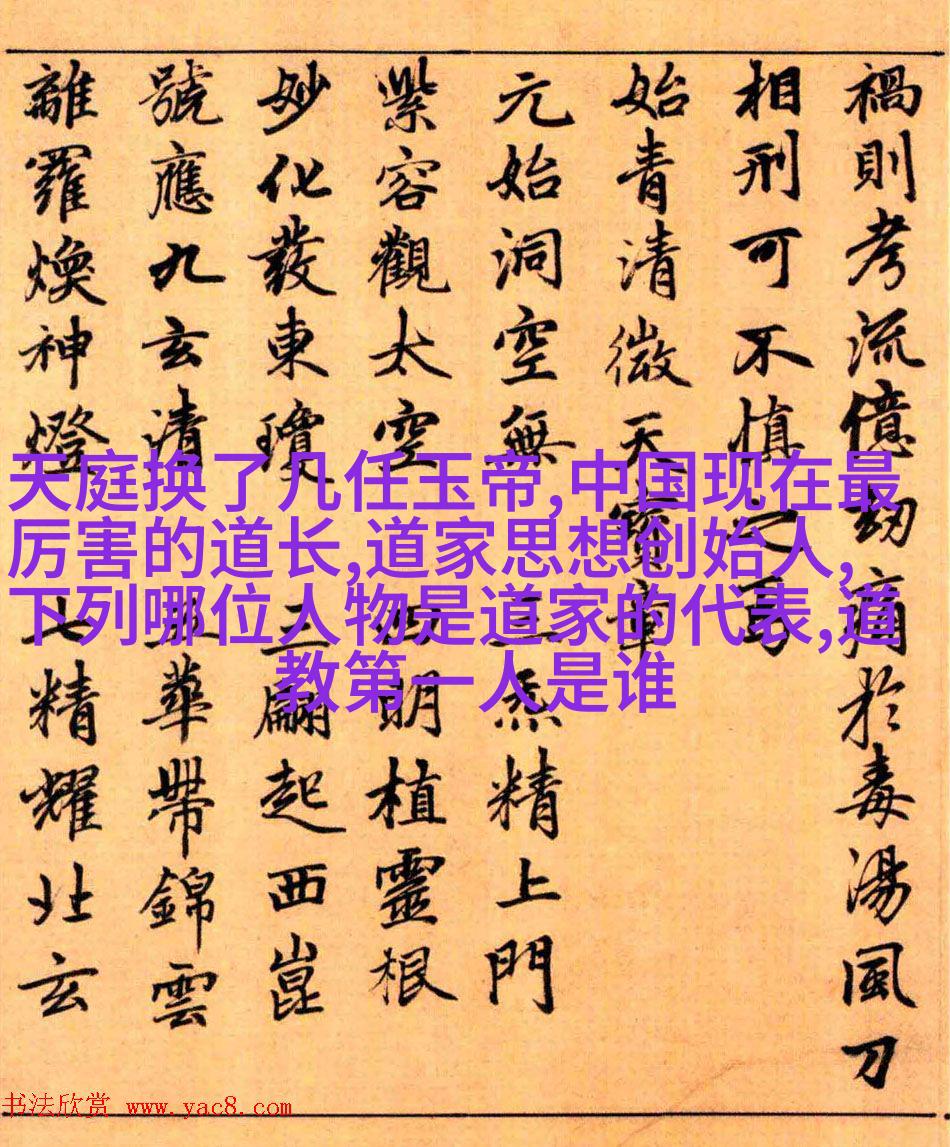 禍則考流億劫痛於毒湯風刀
相刑可不慎之
始青清微天寶章
元始洞空無 三炁精上門
紫容觀太空 明植靈根
妙化發東瓊 三翩起西崑
號應九玄清 五華帶錦雲
離羅煥神燈 七精耀北玄
天庭换了几任玉帝,中国现在最
厉害的道长,道家思想创始人,
下列哪位人物是道家的代表,道
教第一人是谁
书法欣赏 www.yac8.com